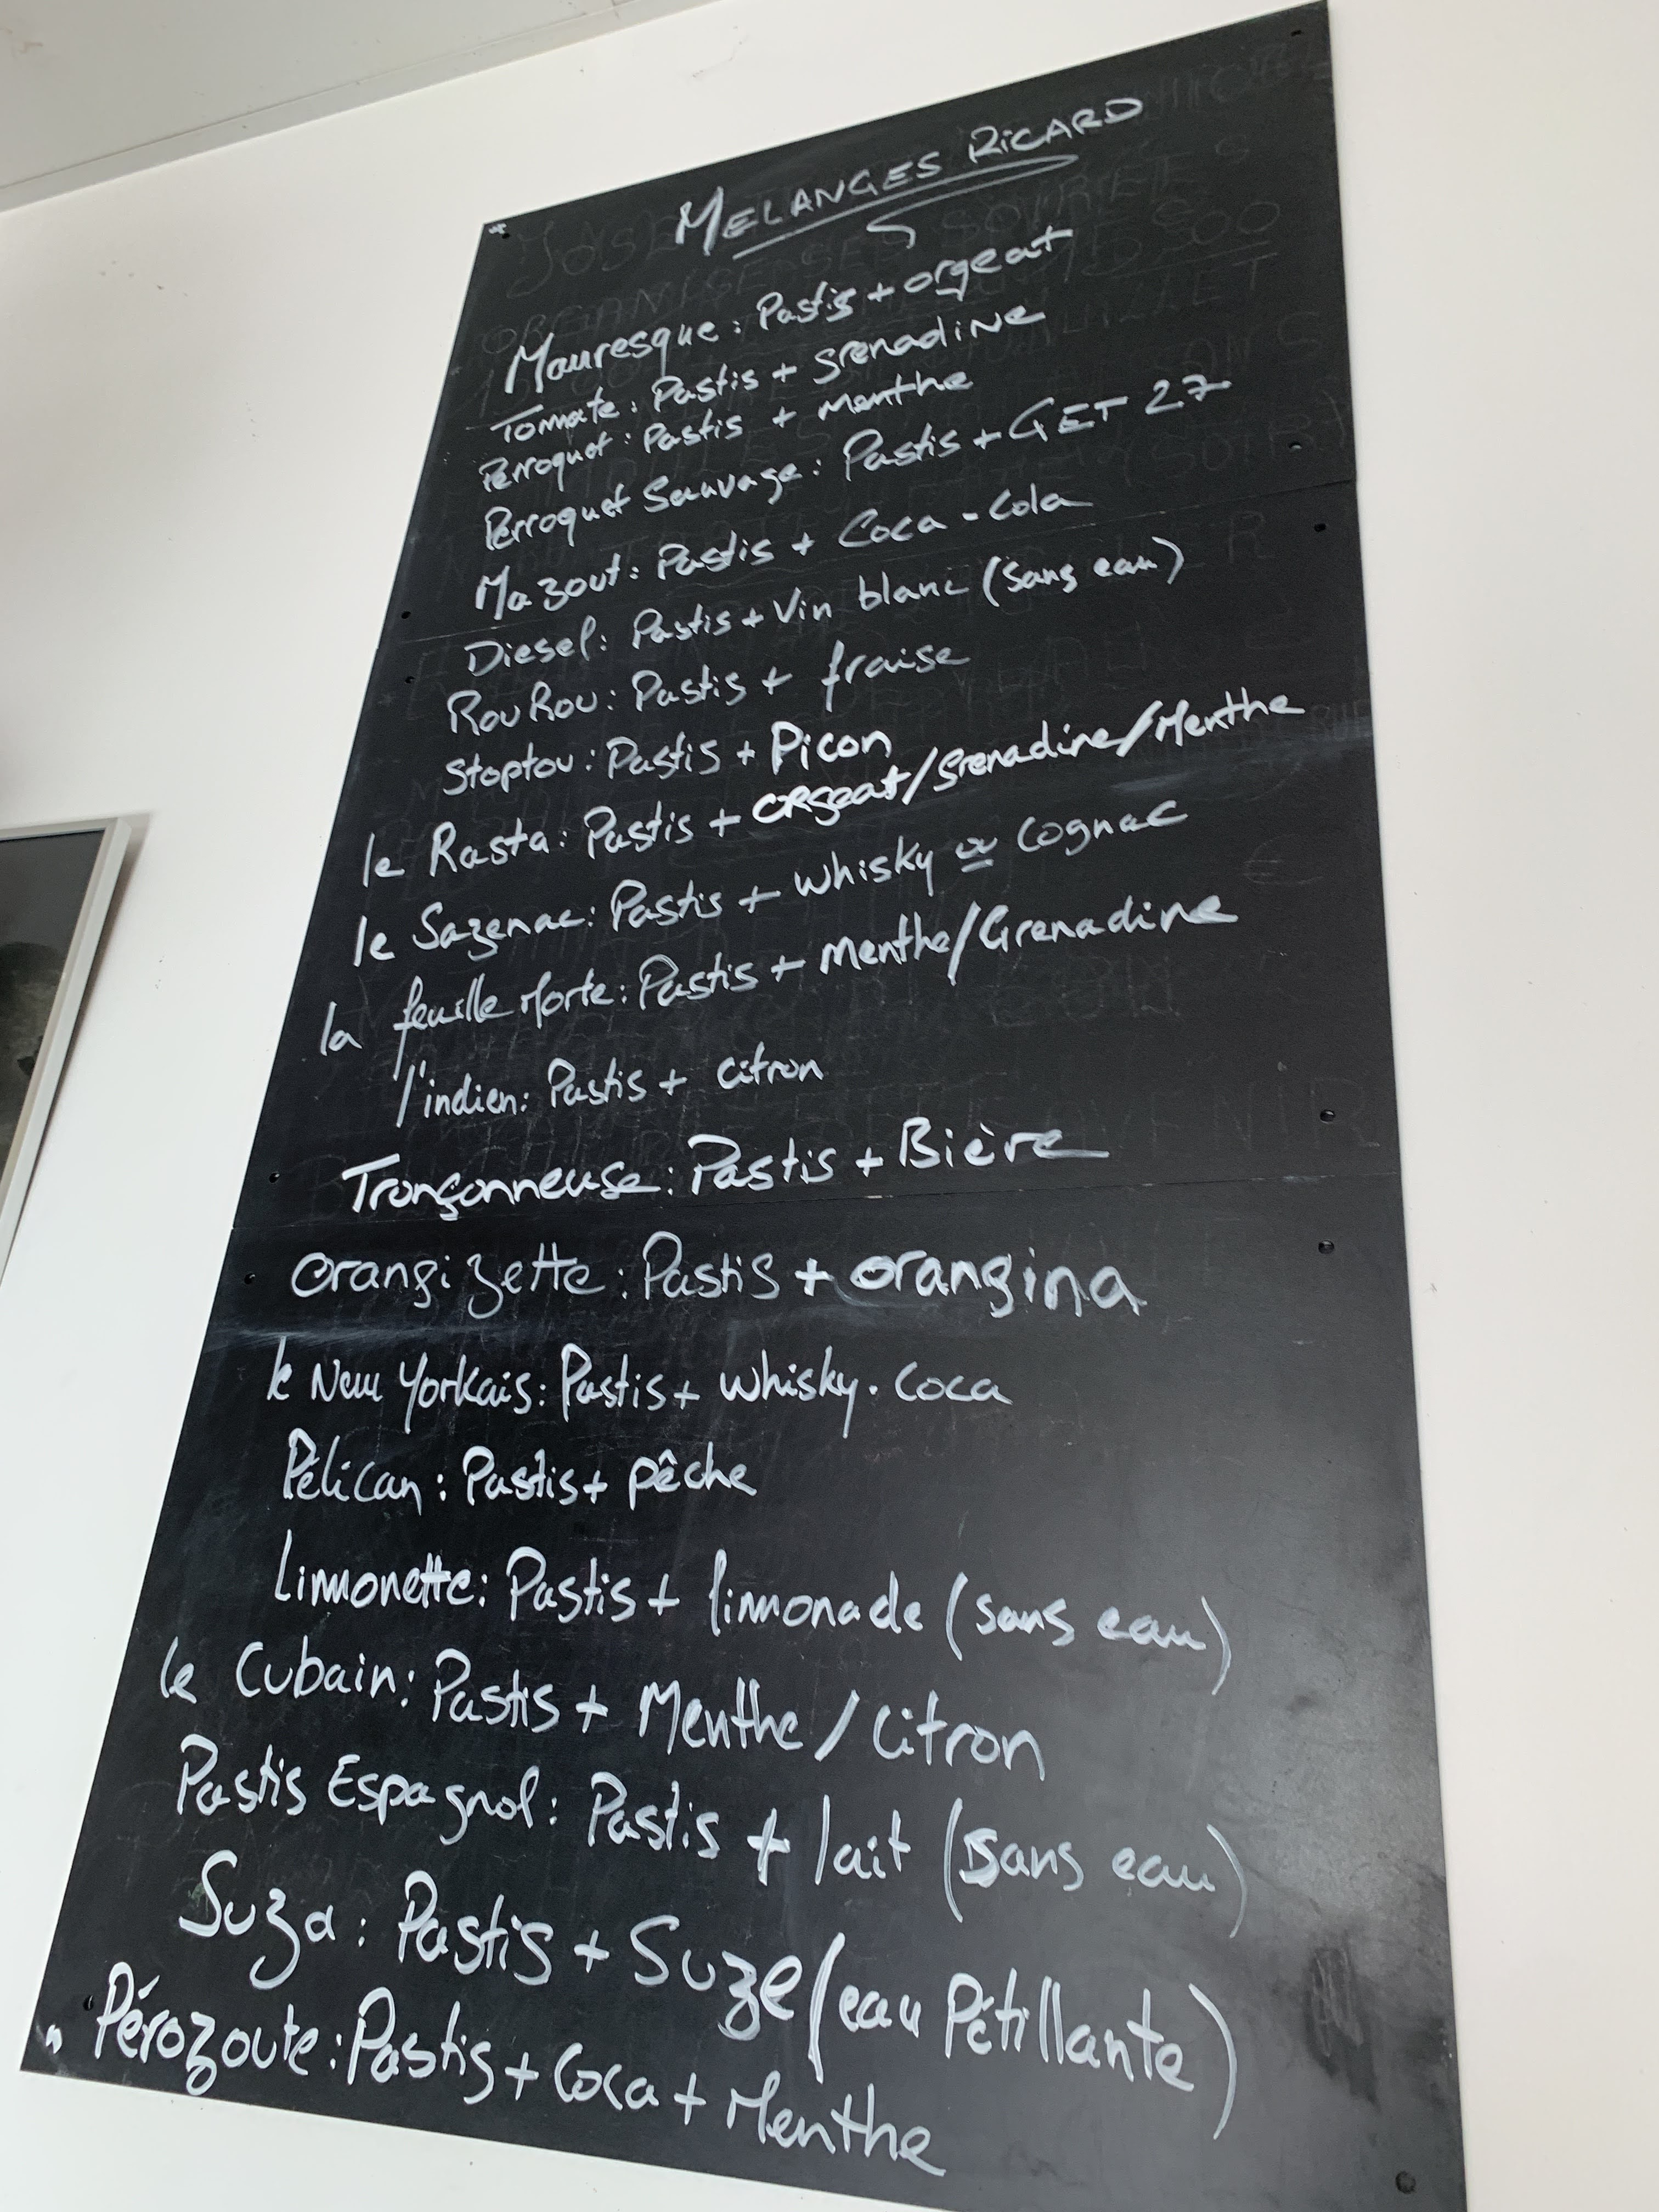 MELANGES RiCARD
Mauresque: Pastis + orgeat
Tomate: Pastis + grenadine
Perroquet: Pastis + menthe
Perroquet Sauvage: Pastis + GET 27
Mazout: Pastis + Coca-Cola
Diesel: Pastis + Vin blanc (sans eau)
RouRou: Pastis + fraise
Stoptou: Pastis + Picon
le Rasta: Pastis + orgeat/Grenadine/Menthe
le Sazenac: Pastis + whisky ou Cognac
la feuille Morte: Pastis + menthe/Grenadine
l'indien: Pastis + citron
Tronçonneuse: Pastis + Bière
Orangizette: Pastis + orangina
le New Yorkais: Pastis + whisky. Coca
Pélican: Pastis + pêche
Limonette: Pastis + limonade (sans eau)
le Cubain: Pastis + Menthe / Citron
Pastis Espagnol: Pastis + lait (sans eau)
Suza: Pastis + Suze (eau Pétillante)
Pérozoute: Pastis + Coca + Menthe